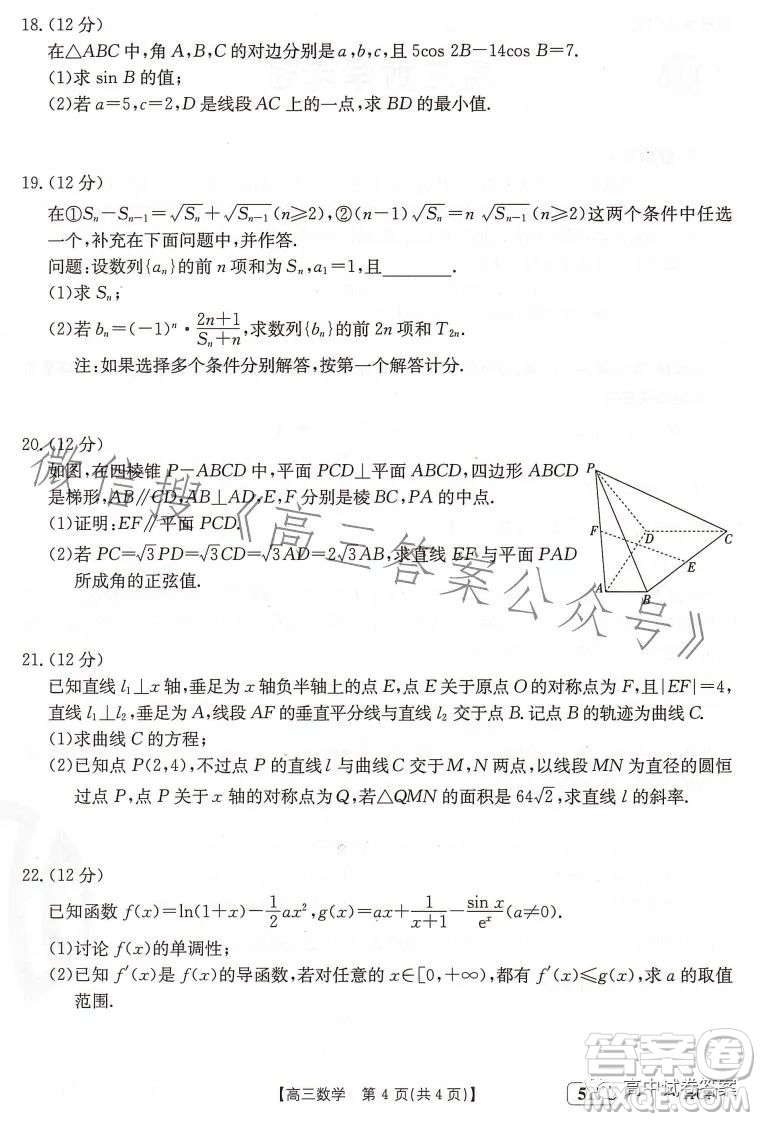 18.(12分)
在△ABC中,角A,B,C的对边分别是a,b,c,且5cos 2B-14cos B=7.
(1)求sin B的值;
(2)若a=5,c=2,D是线段AC上的一点,求BD的最小值.
19.(12分)
在①Sₙ-Sₙ₋₁=√Sₙ+√Sₙ₋₁(n≥2),②(n-1)√Sₙ=n√Sₙ₋₁(n≥2)这两个条件中任选
一个,补充在下面问题中,并作答.
问题:设数列{aₙ}的前n项和为Sₙ,a₁=1,且________.
(1)求Sₙ;
(2)若bₙ=(-1)ⁿ·(2n+1)/(Sₙ+n),求数列{bₙ}的前2n项和T₂ₙ.
注:如果选择多个条件分别解答,按第一个解答计分.
20.(12分)
如图,在四棱锥P-ABCD中,平面PCD⊥平面ABCD,四边形ABCD
是梯形,AB∥CD,AB⊥AD,E,F分别是棱BC,PA的中点.
(1)证明:EF∥平面PCD.
(2)若PC=√3PD=√3CD=√3AD=2√3AB,求直线EF与平面PAD
所成角的正弦值.
P
F
D
C
E
A
B
微信搜《高三答案公众号》
21.(12分)
已知直线l₁⊥x轴,垂足为x轴负半轴上的点E,点E关于原点O的对称点为F,且|EF|=4,
直线l₁⊥l₂,垂足为A,线段AF的垂直平分线与直线l₂交于点B.记点B的轨迹为曲线C.
(1)求曲线C的方程;
(2)已知点P(2,4),不过点P的直线l与曲线C交于M,N两点,以线段MN为直径的圆恒
过点P,点P关于x轴的对称点为Q,若△QMN的面积是64√2,求直线l的斜率.
22.(12分)
已知函数f(x)=ln(1+x)-1/2ax²,g(x)=ax+1/(x+1)-sin x/eˣ(a≠0).
(1)讨论f(x)的单调性;
(2)已知f′(x)是f(x)的导函数,若对任意的x∈[0,+∞),都有f′(x)≤g(x),求a的取值
范围.
【高三数学 第4页(共4页)】
高中试卷答案
答案圈